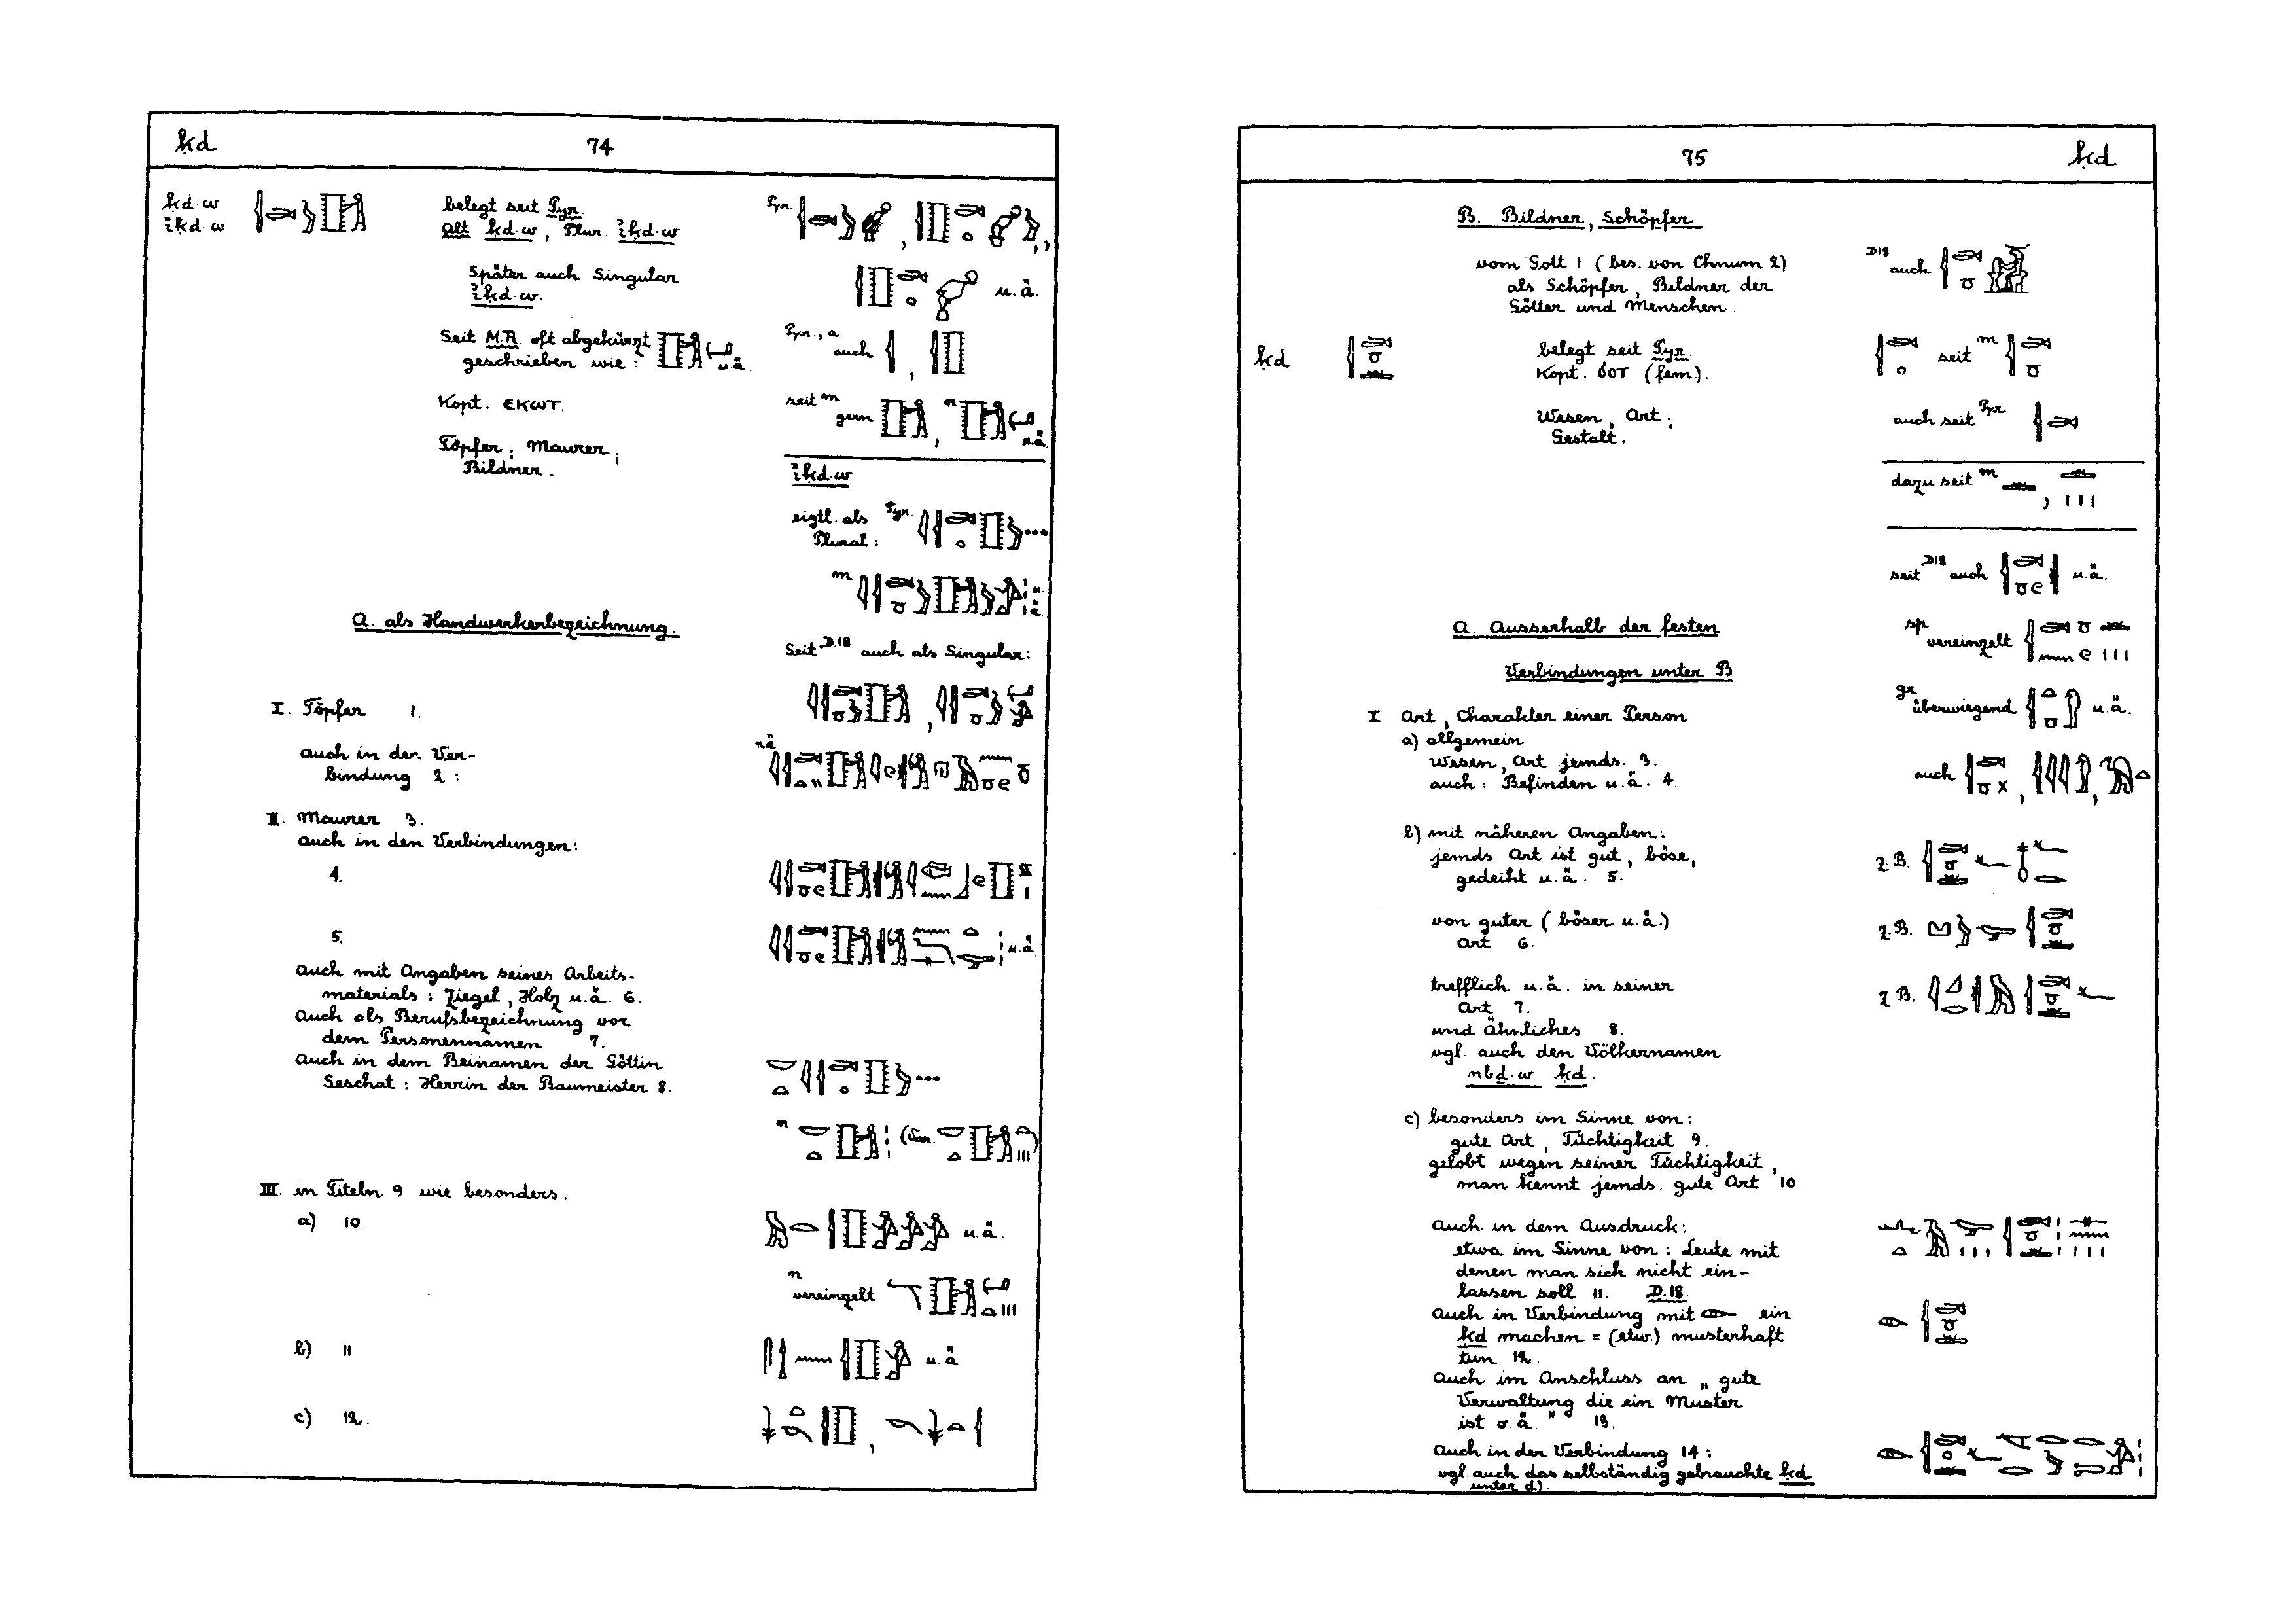 ḳd 74
ḳd.w
iḳd.w
belegt seit Pyr.
alt ḳd.w, Plur. iḳd.w
Später auch Singular
iḳd.w.
Seit M.R. oft abgekürzt
geschrieben wie: u.ä.
Kopt. ⲉⲕⲱⲧ.
Töpfer; Maurer;
Bildner.
Pyr.
u.ä.
Pyr., a
auch
seit m
gern n u.ä.
iḳd.w
eigtl. als Pyr.
Plural:
m u.ä.
Seit D.18 auch als Singular:
nä
A. als Handwerkerbezeichnung.
I. Töpfer 1.
auch in der Ver-
bindung 2:
II. Maurer 3.
auch in den Verbindungen:
4.
5. u.ä.
Auch mit Angaben seines Arbeits-
materials: Ziegel, Holz u.ä. 6.
Auch als Berufsbezeichnung vor
dem Personennamen 7.
Auch in dem Beinamen der Göttin
Seschat: Herrin der Baumeister 8.
n (Var. )
III. in Titeln 9 wie besonders.
a) 10 u.ä.
n
vereinzelt
b) 11. u.ä
c) 12.
75 ḳd
B. Bildner, Schöpfer
vom Gott 1 (bes. von Chnum 2)
als Schöpfer, Bildner der
Götter und Menschen.
D18 auch
ḳd
belegt seit Pyr.
Kopt. ϭⲟⲧ (fem.).
Wesen, Art;
Gestalt.
seit m
auch seit Pyr
dazu seit m
seit D18 auch u.ä.
sp
vereinzelt
gr
überwiegend u.ä.
auch
A. Ausserhalb der festen
Verbindungen unter B
I. Art, Charakter einer Person
a) allgemein
Wesen, Art jemds. 3.
auch: Befinden u.ä. 4.
b) mit näheren Angaben:
jemds Art ist gut, böse,
gedeiht u.ä. 5.
z.B.
von guter (böser u.ä.)
Art 6.
z.B.
trefflich u.ä. in seiner
Art 7.
z.B.
und Ähnliches 8.
vgl. auch den Völkernamen
nbḏ.w ḳd.
c) besonders im Sinne von:
gute Art, Tüchtigkeit 9.
gelobt wegen seiner Tüchtigkeit,
man kennt jemds. gute Art 10
Auch in dem Ausdruck:
etwa im Sinne von: Leute mit
denen man sich nicht ein-
lassen soll 11. D.18.
Auch in Verbindung mit ein
ḳd machen = (etw.) musterhaft
tun 12.
Auch im Anschluss an „gute
Verwaltung die ein Muster
ist o.ä." 13.
Auch in der Verbindung 14:
vgl. auch das selbständig gebrauchte ḳd
unter d).